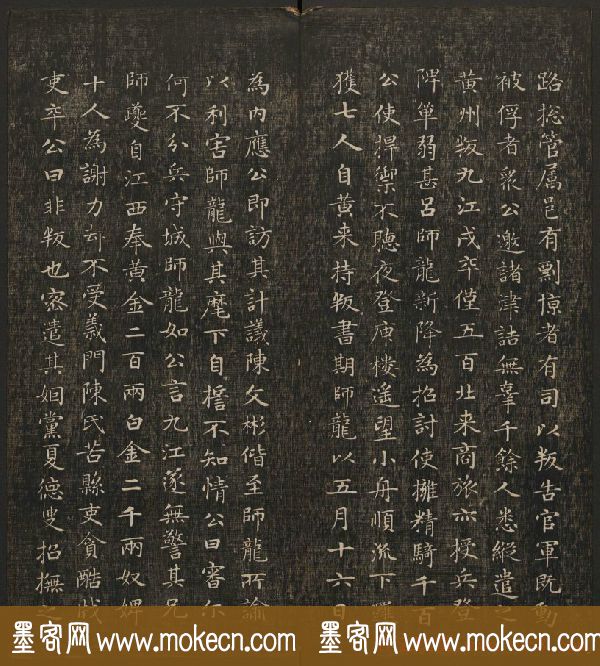 路捴管属邑有剽掠者有司以叛告官軍既動
被俘者衆公邀諸津詰無辜千餘人悉縱遣之
黄州叛九江戍卒僅五百北来商旅亦授兵登
陴單弱甚吕師龍新降為招討使擁精騎千百
公使捍禦不聽夜登庾楼遥望小舟順流下
獲七人自黄来持叛書期師龍以五月十六日
為内應公即訪其計議陳文彬偕至師龍所諭
以利害師龍與其麾下自誓不知情公曰審尔
何不分兵守城師龍如公言九江遂無警其兄
師夔自江西奉黄金二百兩白金二千兩奴婢
十人為謝力却不受義門陳氏苦縣吏貪酷戕
吏卒公曰非叛也密遣其姻黨夏德叟招撫之
墨客网 www.mokecn.com 墨客网 www.mokecn.com